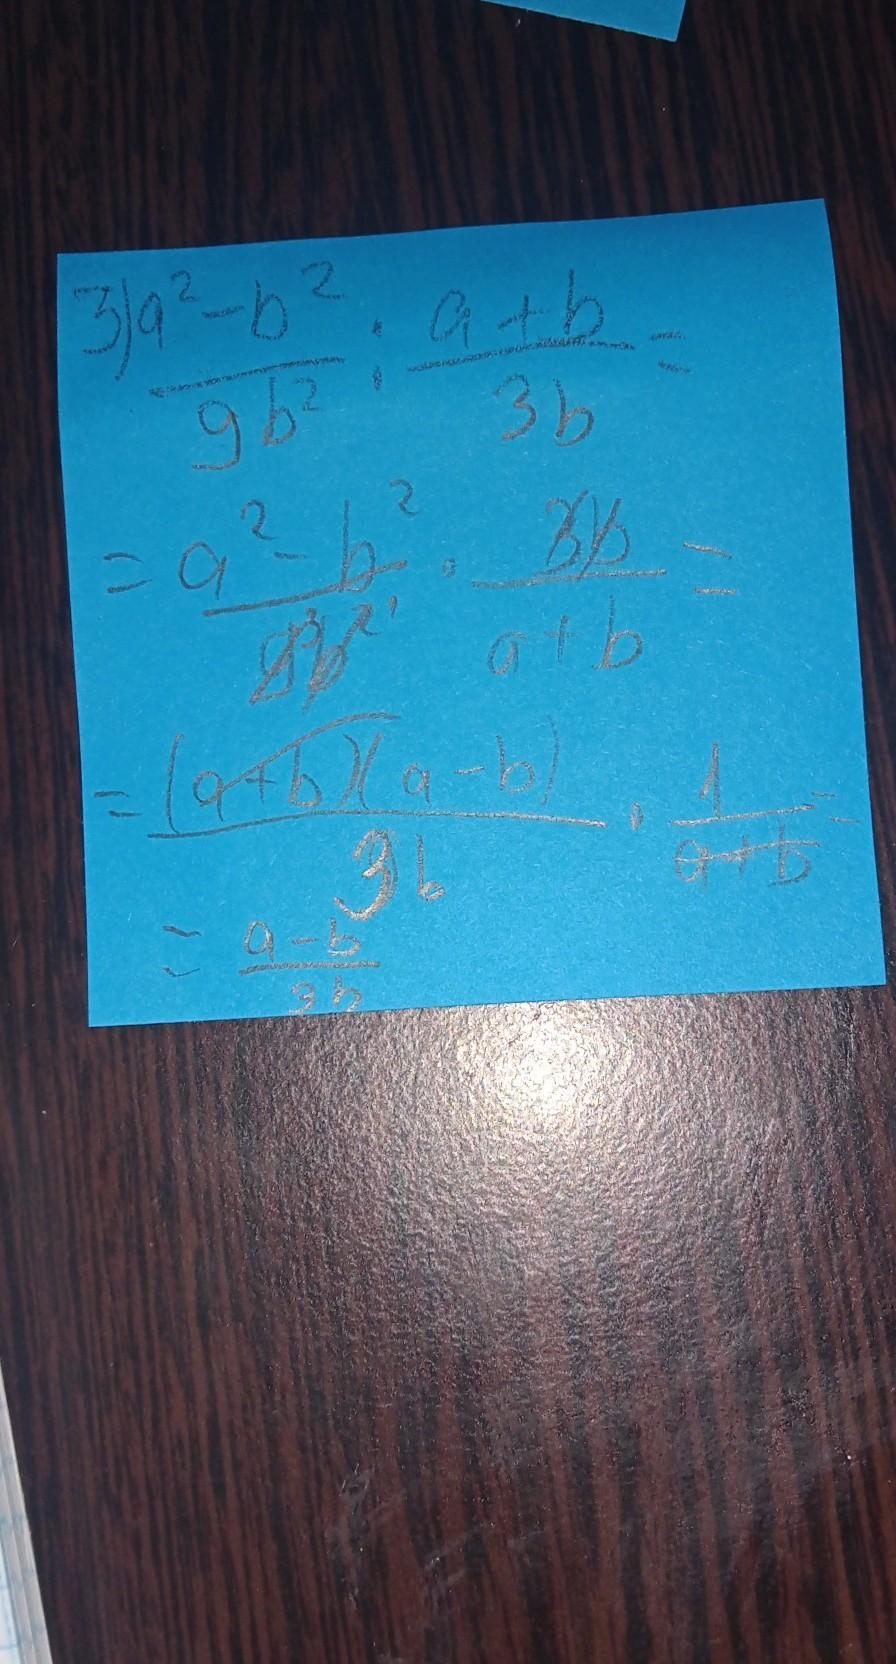 3) a²-b²/9b² : a+b/3b =
= a²-b²/9³b²¹ · 3b/a+b =
= (a+b)(a-b)/3b · 1/a+b =
= a-b/3b